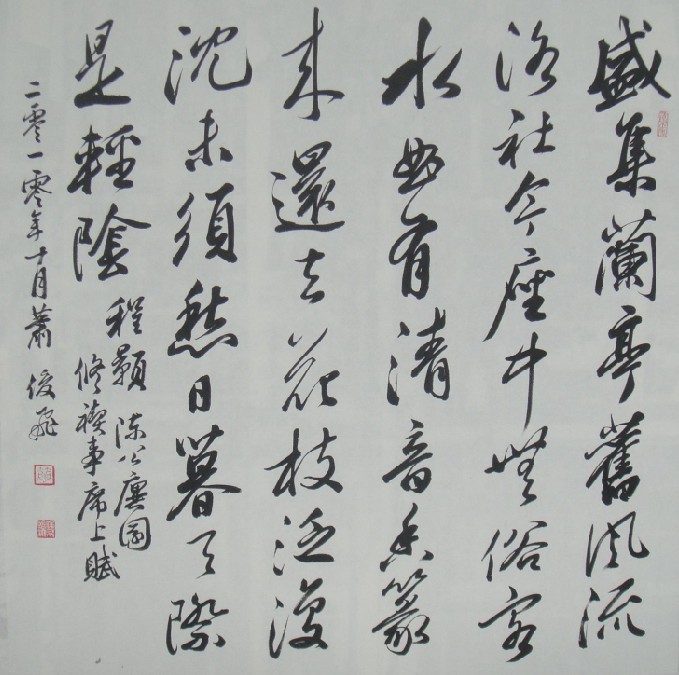 盛集蘭亭舊風流
洛社今座中無俗客
水曲有清音香篆
來還去花枝泛復
沈未須愁日暮天際
是輕陰
程顥 陳公廙園
修禊事席上賦
二零一零年十月蕭俊飛